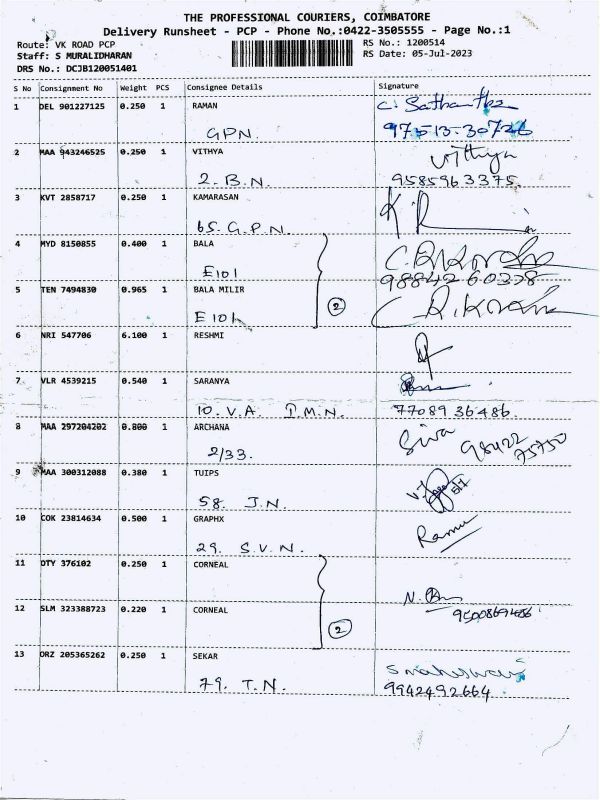 THE PROFESSIONAL COURIERS, COIMBATORE
Delivery Runsheet - PCP - Phone No.:0422-3505555 - Page No.:1
Route: VK ROAD PCP
RS No.: 1200514
Staff: S MURALIDHARAN
RS Date: 05-Jul-2023
DRS No.: DCJB120051401
S No Consignment No Weight PCS Consignee Details Signature
1 DEL 901227125 0.250 1 RAMAN C. Sathantka
GPN. 97513-30726
2 MAA 943246525 0.250 1 VITHYA Vithya
2. B.N. 9585963375
3 KVT 2858717 0.250 1 KAMARASAN
65. G.P.N.
4 MYD 8150855 0.400 1 BALA
E101 98842 60378
5 TEN 7494830 0.965 1 BALA MILIR
E101 2
6 NRI 547706 6.100 1 RESHMI
7 VLR 4539215 0.540 1 SARANYA
10. V.A. I.M.N. 77089 36486
8 MAA 297204202 0.800 1 ARCHANA Siva 98422 75750
2/33.
9 MAA 300312088 0.380 1 TUIPS
58. J.N.
10 COK 23814634 0.500 1 GRAPHX Ramu
29. S.V.N.
11 OTY 376102 0.250 1 CORNEAL
12 SLM 323388723 0.220 1 CORNEAL
2
13 ORZ 205365262 0.250 1 SEKAR S maheswari
79. T.N. 9942492664